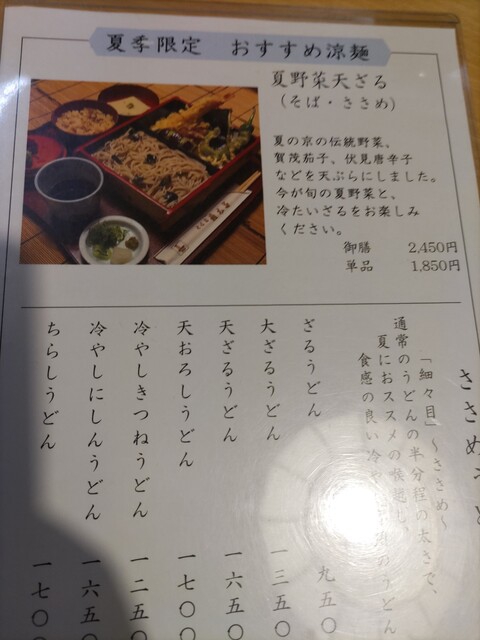 夏季限定　おすすめ涼麺
夏野菜天ざる
（そば・ささめ）
夏の京の伝統野菜、
賀茂茄子、伏見唐辛子
などを天ぷらにしました。
今が旬の夏野菜と、
冷たいざるをお楽しみ
ください。
御膳　2,450円
単品　1,850円
ささめ
「細々目」～ささめ～
通常のうどんの半分程の太さで、
夏におススメの
食感の良い冷や　のうどん
ざるうどん　九五〇
大ざるうどん　一三五〇
天ざるうどん　一六五〇
天おろしうどん　一七〇〇
冷やしきつねうどん　一二五〇
冷やしにしんうどん　一六五〇
ちらしうどん　一七〇〇